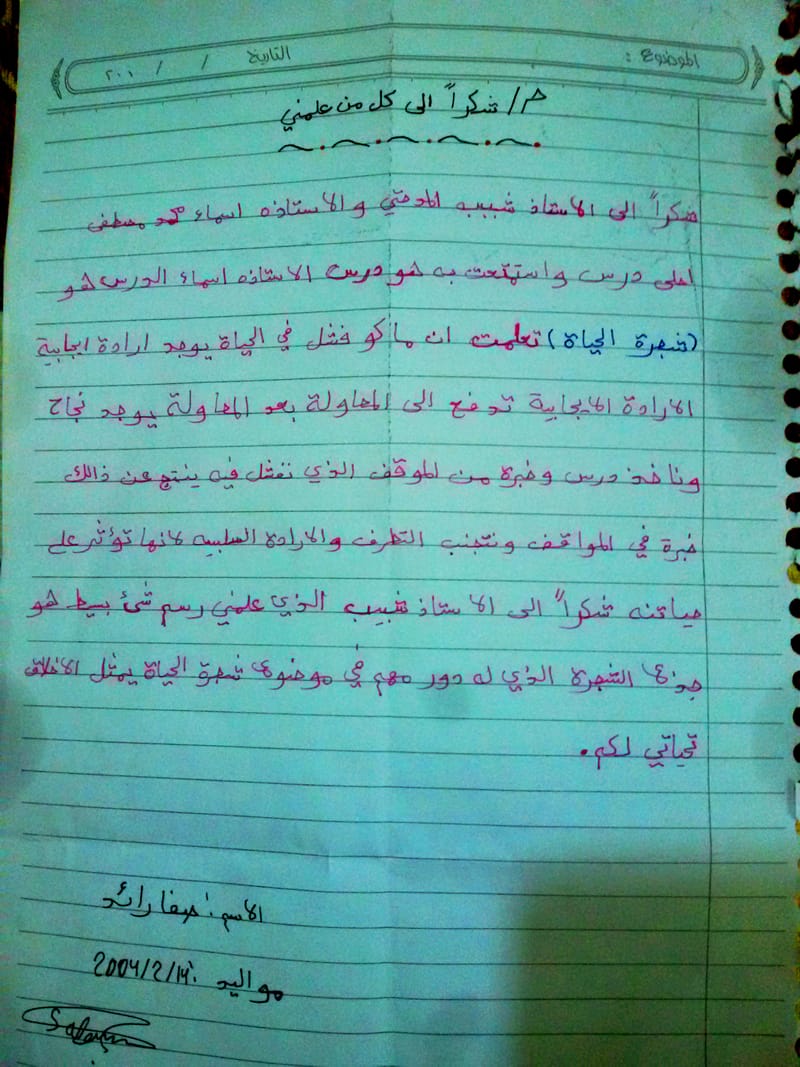 الموضوع : التاريخ / / ٢٠٠
م/ شكراً الى كل من علمني
شكراً الى الاستاذ شبيب المدحتي والاستاذه اسماء محمد مصطفى
احلى درس واستمتعت به هو درس الاستاذه اسماء الدرس هو
(شجرة الحياة) تعلمت ان ماكو فشل في الحياة يوجد ارادة ايجابية
الارادة الايجابية تدفع الى المحاولة بعد المحاولة يوجد نجاح
وناخذ درس وخبرة من الموقف الذي نفشل فيه ينتج عن ذالك
خبرة في المواقف ونتجنب التطرف والارادة السلبيه لانها تؤثر على
حياتنه شكراً الى الاستاذ شبيب الذي علمني رسم شئ بسيط هو
جذع الشجرة الذي له دور مهم في موضوع شجرة الحياة يمثل الاخلاق
تحياتي لكم.
الاسم: صفا رائد
مواليد 2004/2/14